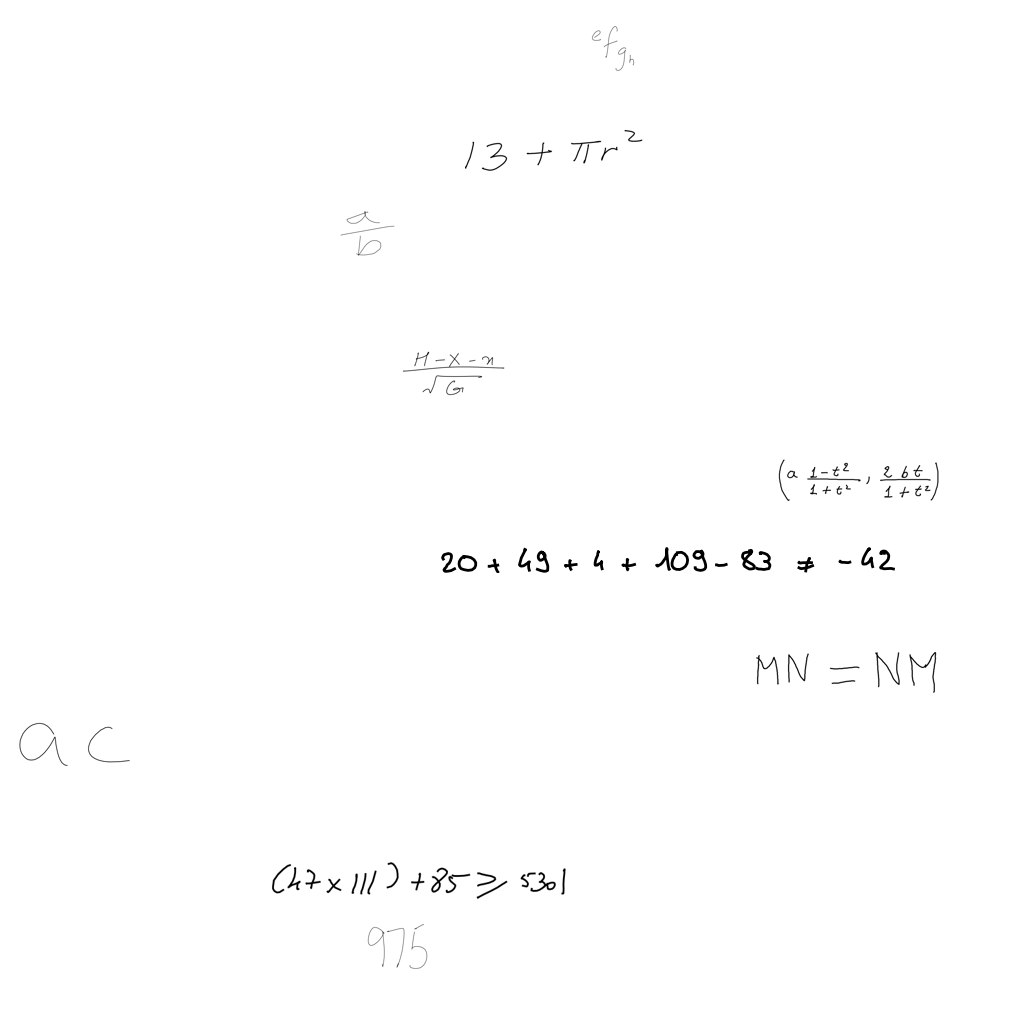 e f g h
13 + πr²
a/b
(H - X - n)/√G
(a (1-t²)/(1+t²), (2bt)/(1+t²))
20 + 49 + 4 + 109 - 83 ≠ -42
MN = NM
a c
(47 × 111) + 85 ≥ 5301
975